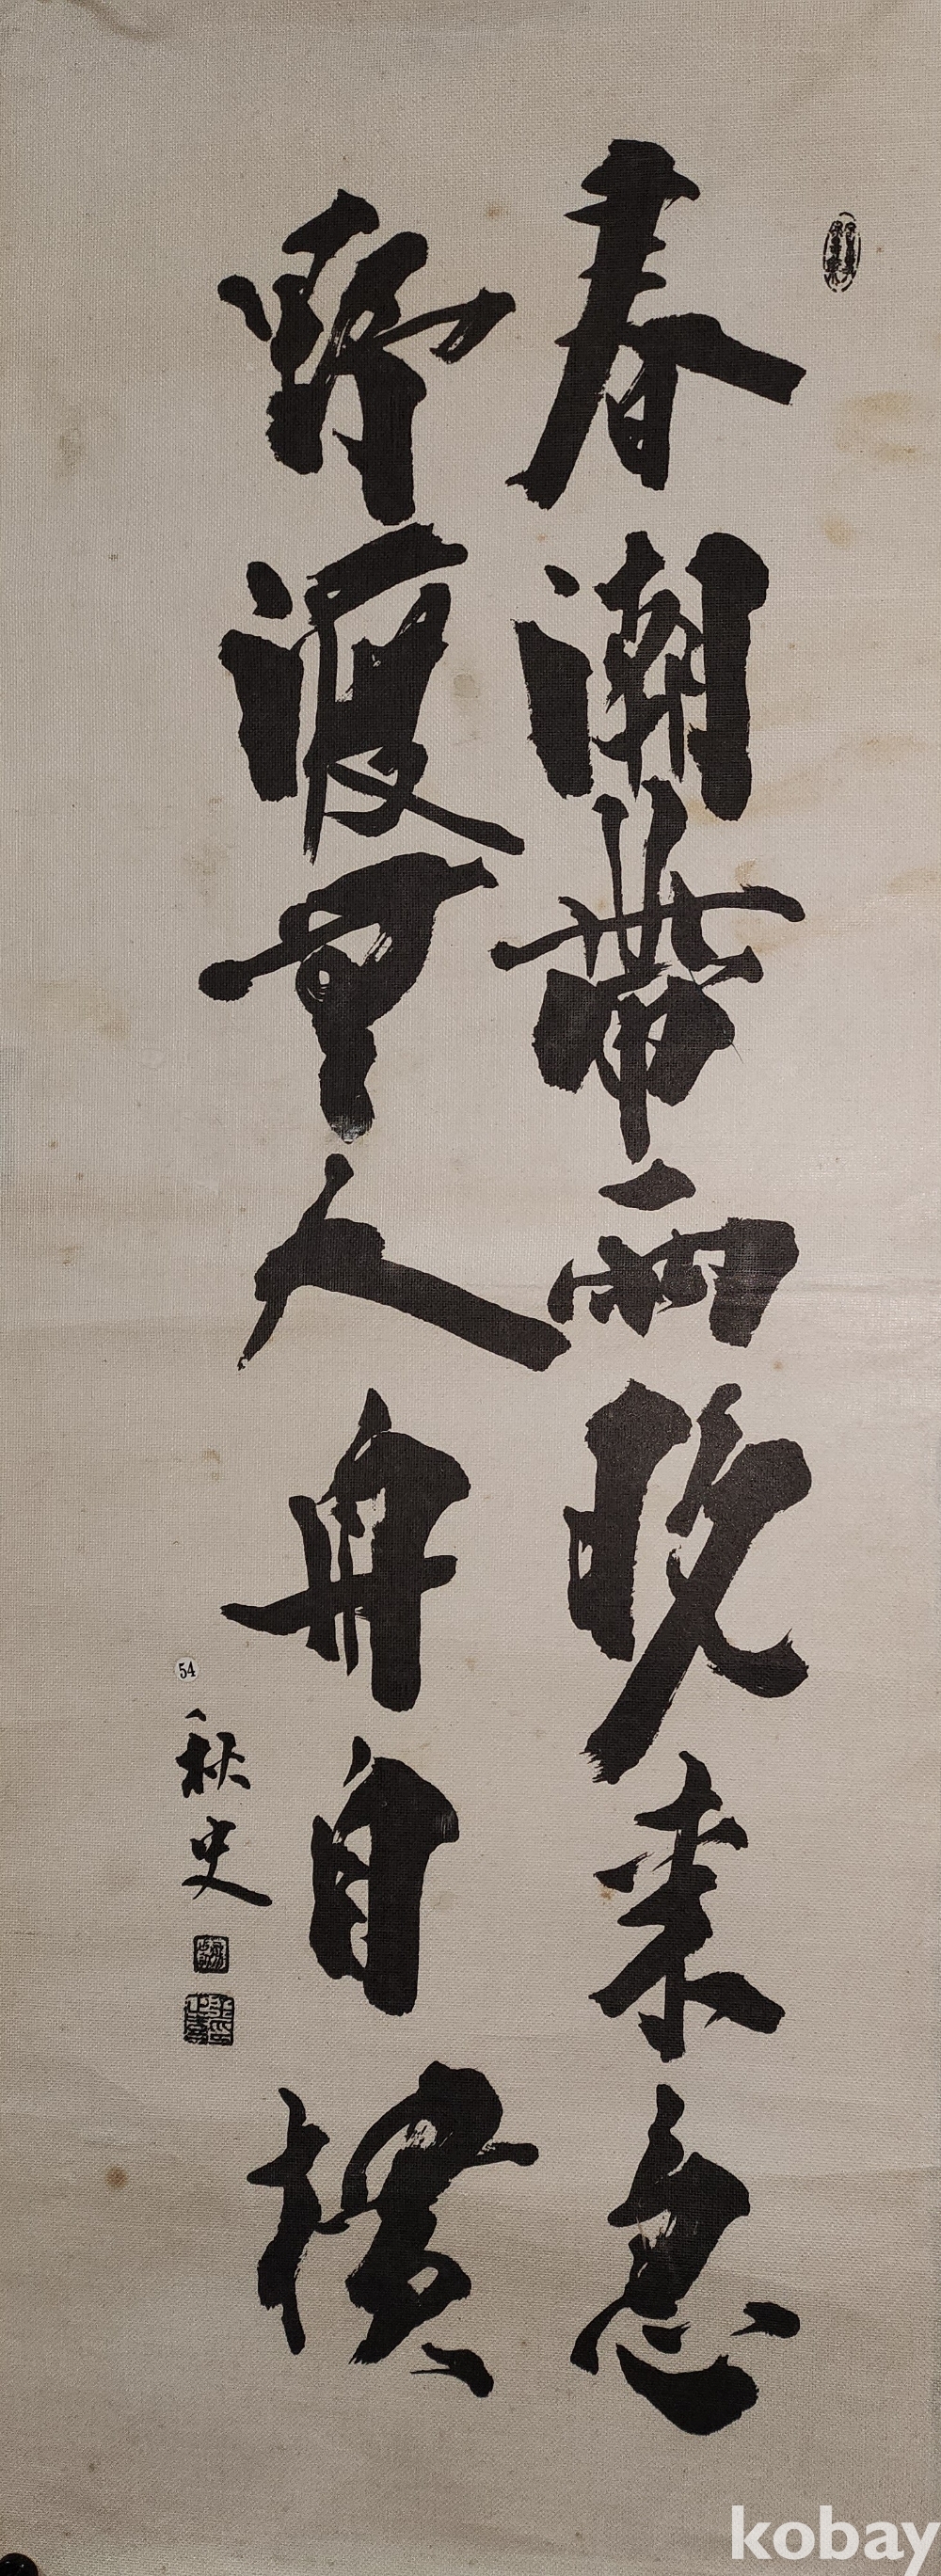 春潮帶雨晚來急
野渡無人舟自橫
54
秋史
kobay